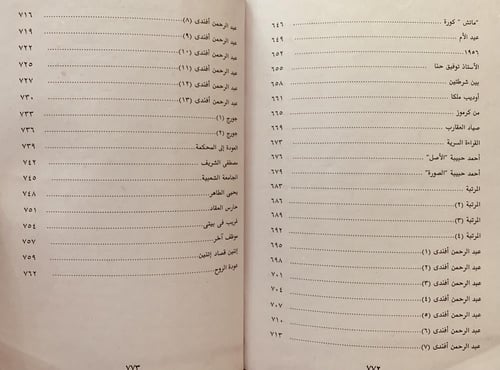 "ماتش" كورة ........ ٦٤٦
عيد الأم ........ ٦٤٩
١٩٥٦ ........ ٦٥٢
الأستاذ توفيق حنا ........ ٦٥٥
بين شرطتين ........ ٦٥٨
أوديب ملكا ........ ٦٦١
من كرموز ........ ٦٦٥
صياد العقارب ........ ٦٦٩
القراءة السرية ........ ٦٧٣
أحمد حبيبة "الأصل" ........ ٦٧٦
أحمد حبيبة "الصورة" ........ ٦٧٩
المرتبة ........ ٦٨٣
المرتبة (٢) ........ ٦٨٦
المرتبة (٣) ........ ٦٨٩
المرتبة (٤) ........ ٦٩٢
عبد الرحمن أفندى (١) ........ ٦٩٥
عبد الرحمن أفندى (٢) ........ ٦٩٨
عبد الرحمن أفندى (٣) ........ ٧٠١
عبد الرحمن أفندى (٤) ........ ٧٠٤
عبد الرحمن أفندى (٥) ........ ٧٠٧
عبد الرحمن أفندى (٦) ........ ٧١٠
عبد الرحمن أفندى (٧) ........ ٧١٣
٧٧٢
عبد الرحمن أفندى (٨) ........ ٧١٦
عبد الرحمن أفندى (٩) ........ ٧١٩
عبد الرحمن أفندى (١٠) ........ ٧٢٢
عبد الرحمن أفندى (١١) ........ ٧٢٥
عبد الرحمن أفندى (١٢) ........ ٧٢٧
عبد الرحمن أفندى (١٣) ........ ٧٣٠
جورج (١) ........ ٧٣٣
جورج (٢) ........ ٧٣٦
العودة إلى المحكمة ........ ٧٣٩
مصطفى الشريف ........ ٧٤٢
الجامعة الشعبية ........ ٧٤٥
يحيى الطاهر ........ ٧٤٨
حارس العقاد ........ ٧٥١
غريب فى بيتى ........ ٧٥٤
موظف آخر ........ ٧٥٧
إثنين قصاد إثنين ........ ٧٥٩
عودة الروح ........ ٧٦٢
٧٧٣